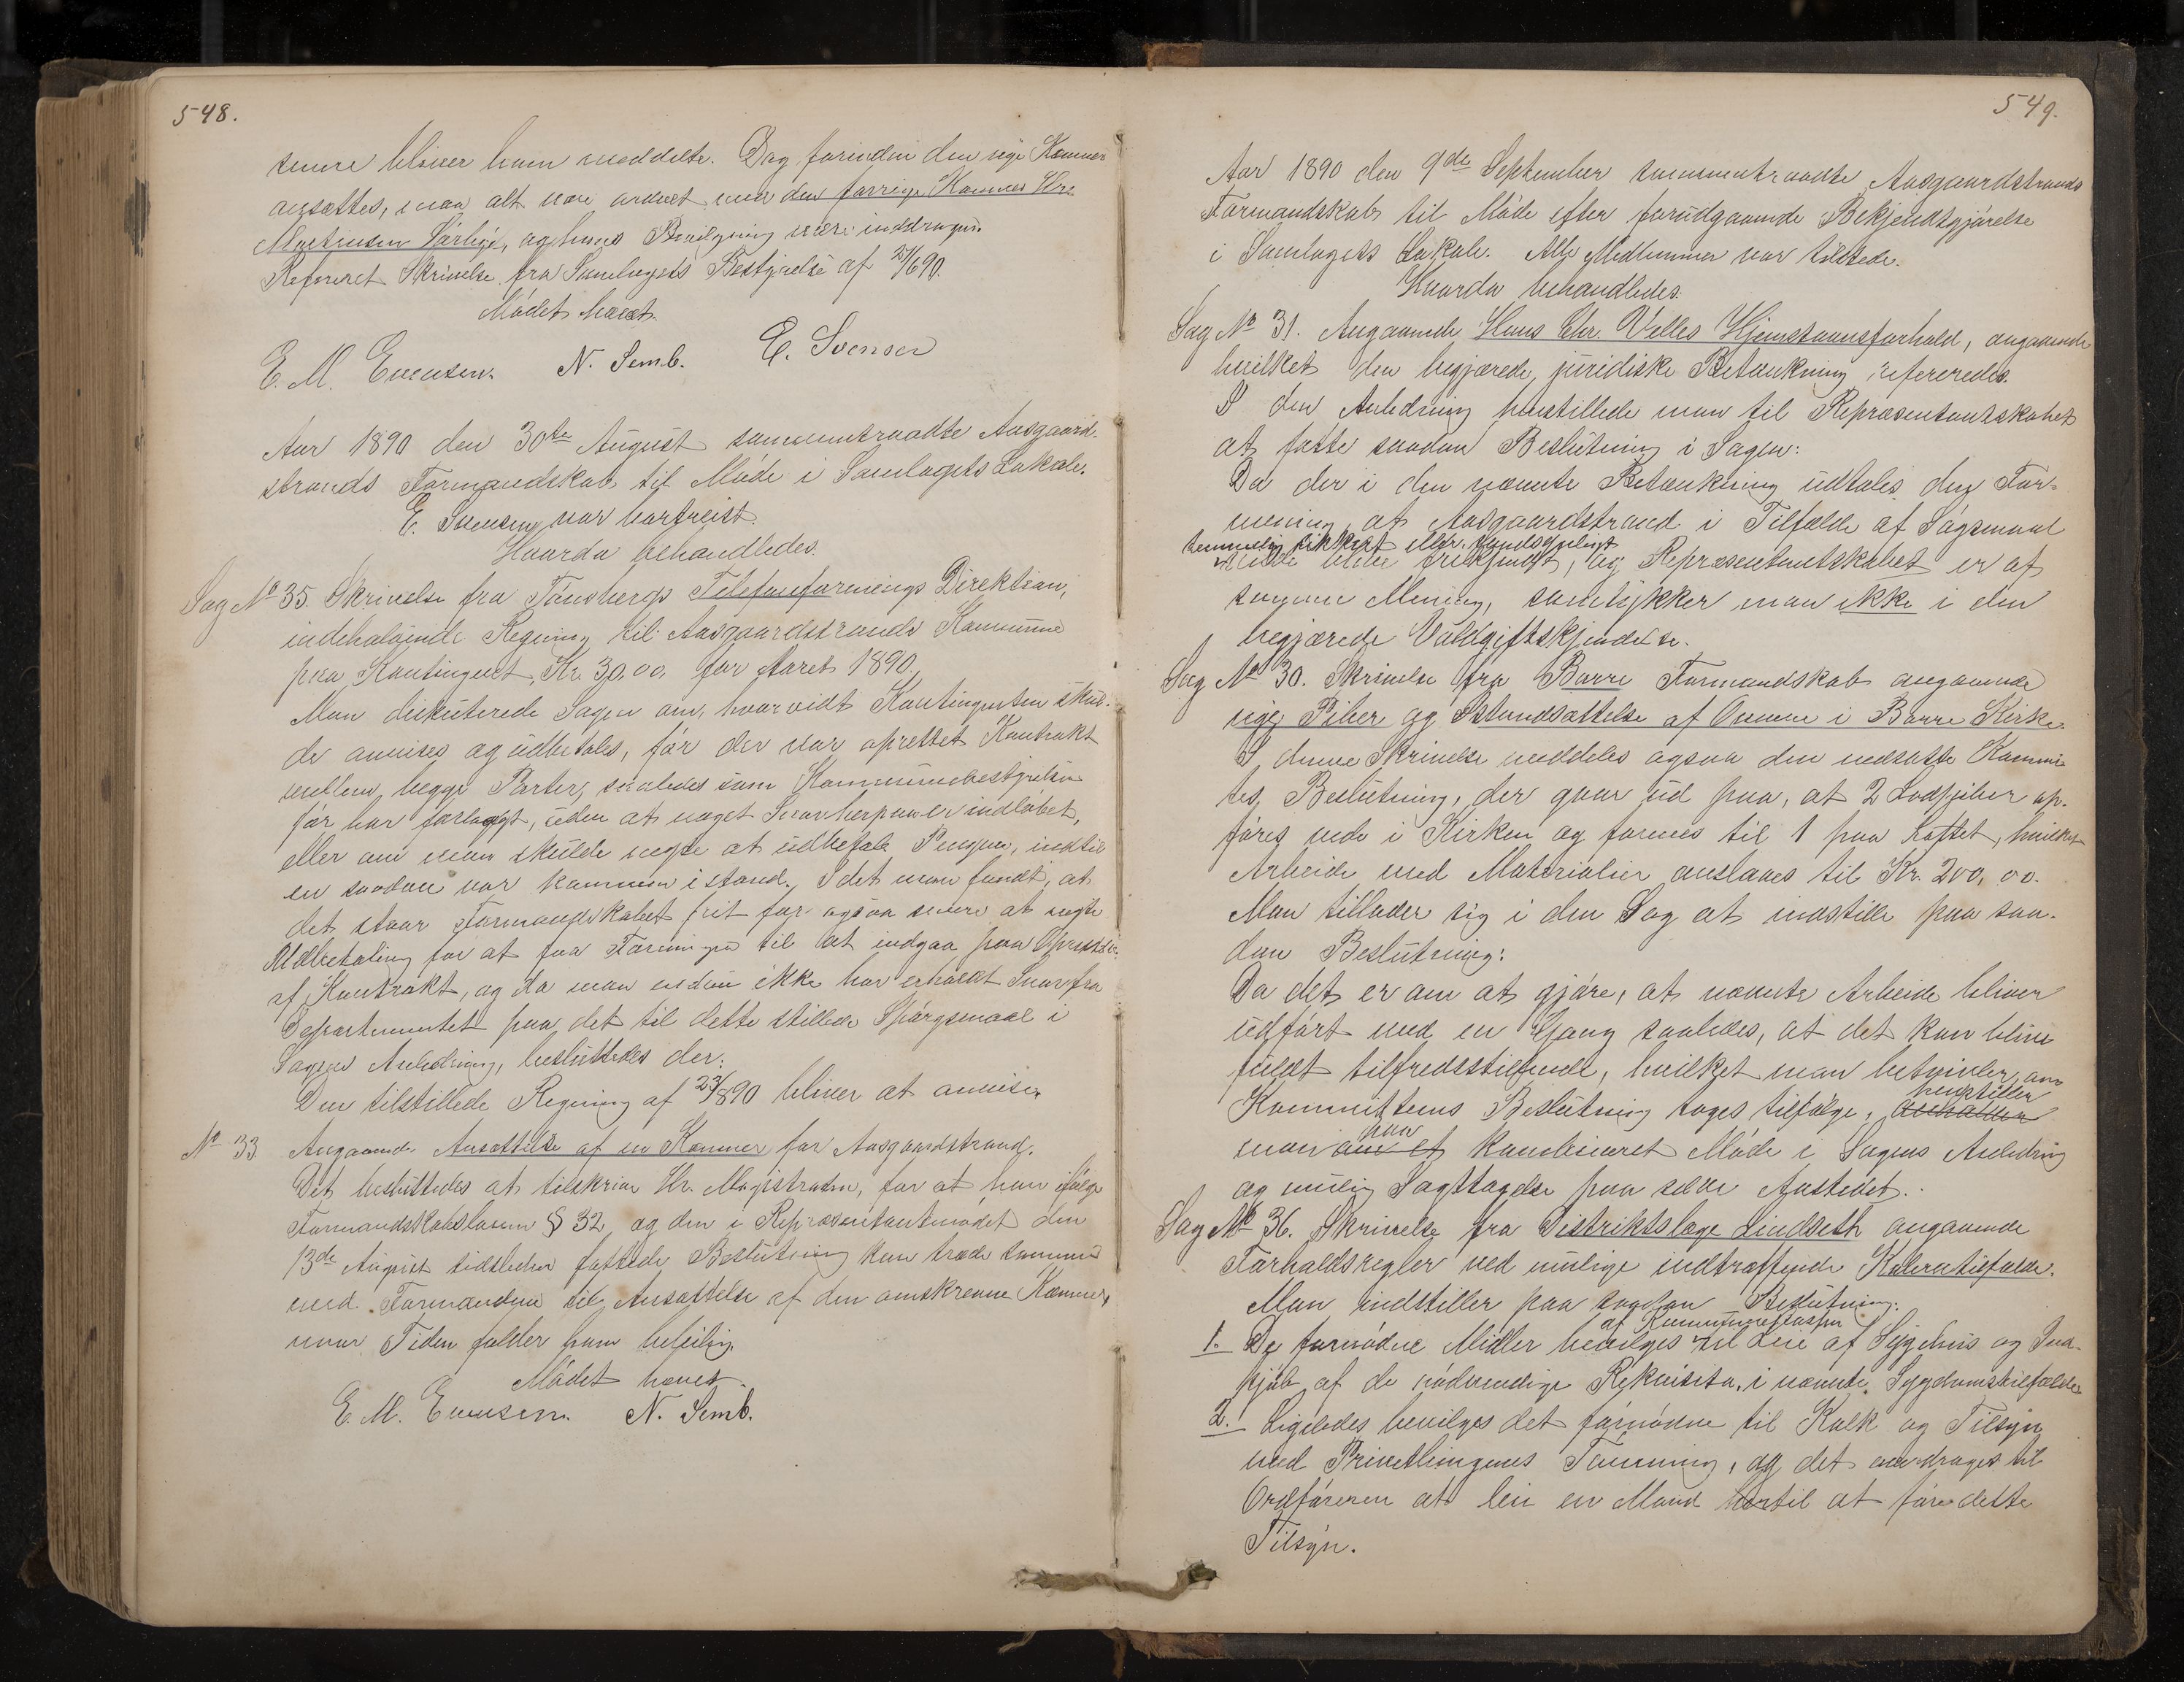 548.
senere bliver ham meddelte. Dog forinden den nye Kæmner
ansættes, maa alt være ordnet med den forrige Kæmner Hr.
Martinsen Sørbye, og hans Bevilgning være inddragen.
Refereret Skrivelse fra Samlagets Bestyrelse af 27/6 90.
Mödet hævet.
E. M. Evensen. N. Semb. E. Svensen
Aar 1890 den 30te August sammentraadte Aasgaard-
strands Formandskab til Möde i Samlagets Lokale.
E. Svensen var bortreist.
Hvorda behandledes.
Sag No 35. Skrivelse fra Tönsbergs Telefonforenings Direktion,
indeholdende Regning til Aasgaardstrands Kommune
paa Kontingent, Kr. 30,00 for Aaret 1890.
Man diskuterede Sagen om, hvorvidt Kontingenten skul-
de anvises og udbetales, för der var oprettet Kontrakt
mellem begge Parter, saaledes som Kommunebestyrelsen
för har forlangt, uden at noget Svar herpaa er indløbet,
eller om man skulde negte at udbetale Pengene, indtil
en saadan var kommen i stand. I det man fandt, at
det staar Formandskabet frit for ogsaa senere at negte
Udbetaling for at faa Foreningen til at indgaa paa Oprettelse
af Kontrakt, og da man endnu ikke har erholdt Svar fra
Departementet paa det til dette stillede Spörgsmaal i
Sagens Anledning, besluttedes der:
Den tilstillede Regning af 23/8 90 bliver at anvise.
No 33. Angaaende Ansættelse af en Kæmner for Aasgaardstrand.
Det besluttedes at tilskrive Hr. Magistraten, for at han ifölge
Formandskabsloven § 32 og den i Repræsentantmödet den
13de August sidstleden fattede Beslutning kan træde sammen
med Formanden til Ansættelse af den omskrevne Kæmner,
naar Tiden falder ham beleilig.
Mödet hævet.
E. M. Evensen. N. Semb.
549.
Aar 1890 den 9de September sammentraadte Aasgaardstrands
Formandskab til Möde efter forudgaaende Bekjendtgjörelse
i Samlagets Lokale. Alle Medlemmer var tilstede.
Hvorda behandledes.
Sag No 31. Angaaende Hans Chr. Velles Hjemstavnsforhold, angaaende
hvilket den begjærede juridiske Betænkning refereredes.
I den Anledning henstillede man til Repræsentantskabet
at fatte saadan Beslutning i Sagen:
Da der i den nævnte Betænkning udtales den For-
mening, at Aasgaardstrand i Tilfælde af Sögsmaal
temmelig sikkert eller sandsynligt
vilde blive frikjendt, og Repræsentantskabet er af
samme Mening, samtykker man ikke i den
begjærede Voldgiftskjendelse.
Sag No 30. Skrivelse fra Borre Formandskab angaaende
nye Piber og Istandsættelse af Ovnene i Borre Kirke.
I denne Skrivelse meddeles ogsaa den nedsatte Kommi-
tes Beslutning, der gaar ud paa, at 2 Lodpiber op-
föres nede i Kirken og forenes til 1 paa Loftet, hvilket
Arbeide med Materialier anslaaes til Kr. 200,00.
Man tillader sig i den Sag at indstille paa saa-
dan Beslutning:
Da det er om at gjöre, at nævnte Arbeide bliver
udfört med en Gang saaledes, at det kan blive
fuldt tilfredsstillende, hvilket man betvivler, om
Kommitteens Beslutning tages tilfölge, henstiller
man paa om et kombineret Möde i Sagens Anledning
og mulig Iagttagelse paa selve Aastedet.
Sag No 36. Skrivelse fra Distriktslæge Lindseth angaaende
Forholdsregler ved mulige indtræffende Koleratilfælde.
Man indstiller paa saadan Beslutning:
af Kommunekassen
1. De fornödne Midler bevilges til Leie af Sygehus og Ind-
kjöb af de nödvendige Rekvisita, i nævnte Sygdomstilfælde
2. Ligeledes bevilges det fornödne til Kalk og Tilsyn
med Privetbingenes Tömning, og det overdrages til
Ordföreren at leie en Mand hertil at före dette
Tilsyn.